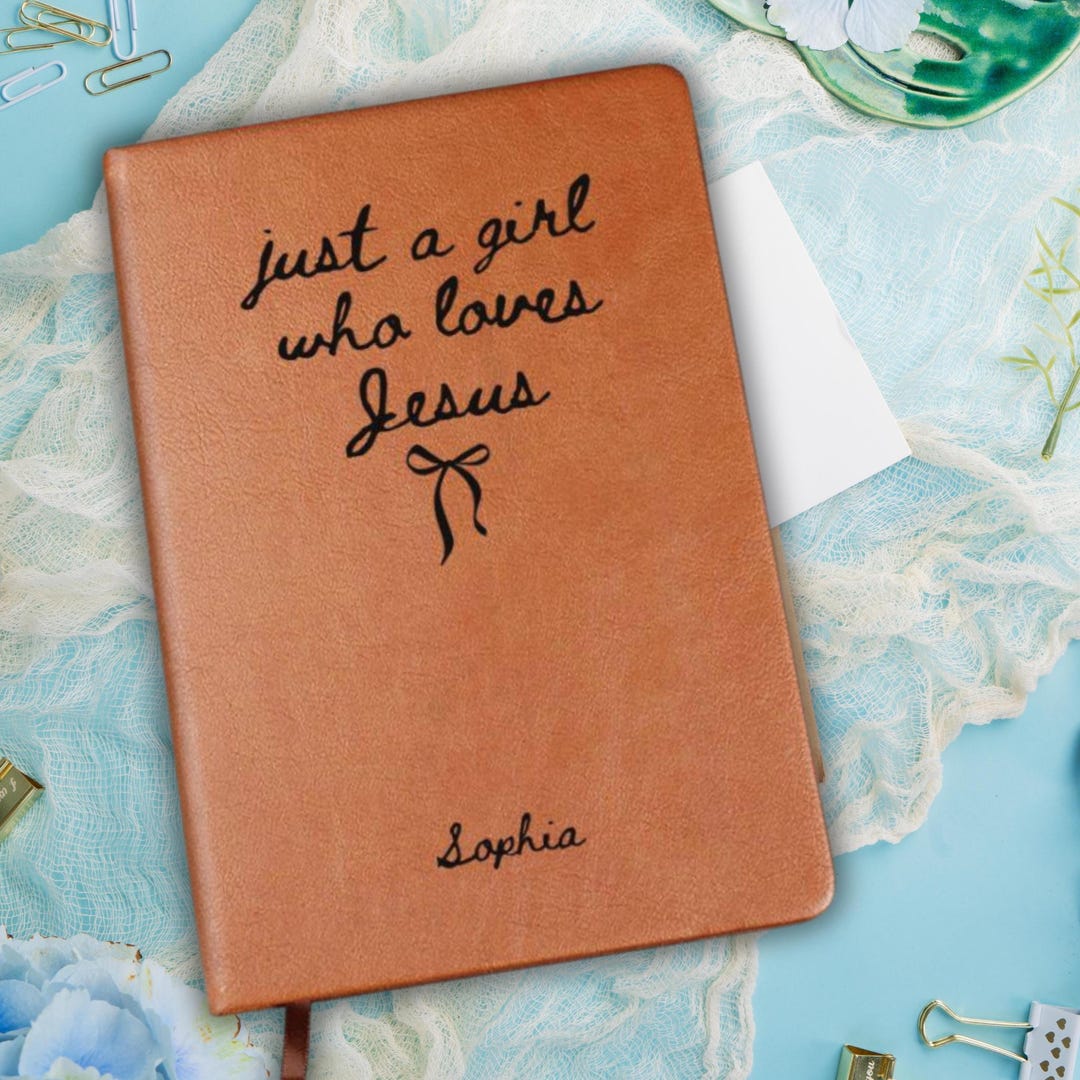 just a girl
who loves
Jesus
Sophia